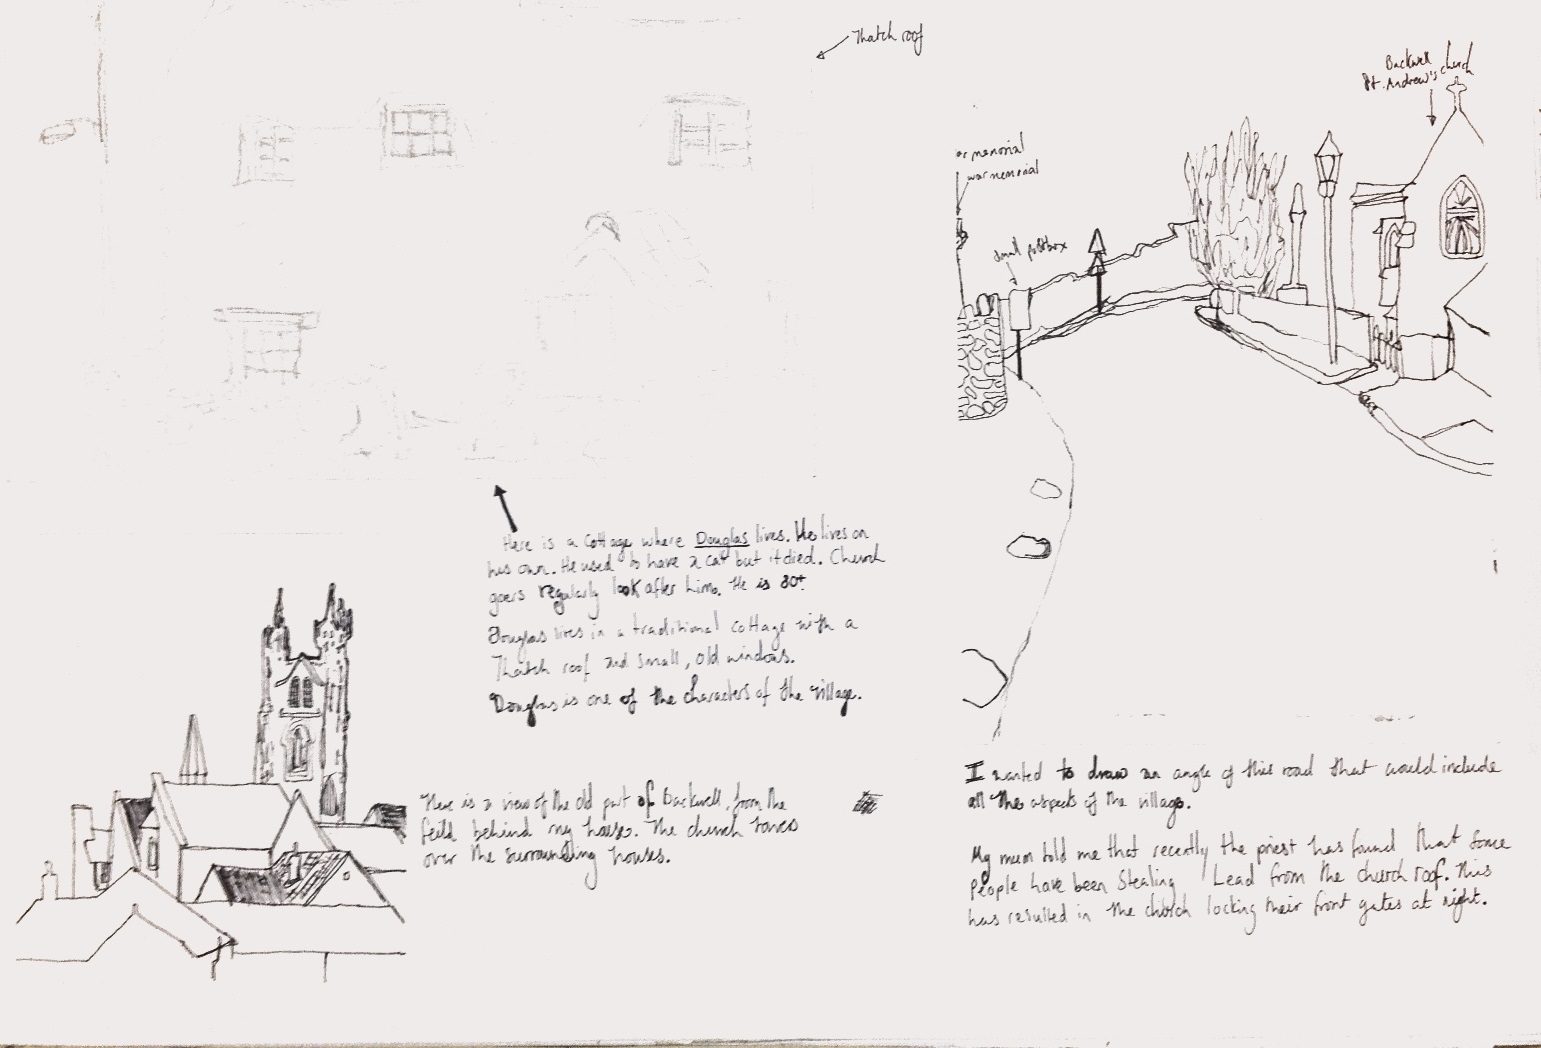 Thatch roof
Here is a cottage where Douglas lives. He lives on
his own. He used to have a cat but it died. Church
goers regularly look after him. He is 80+
Douglas lives in a traditional cottage with a
Thatch roof and small, old windows.
Douglas is one of the characters of the village.
Here is a view of the old part of Backwell, from the
feild behind my house. The church towers
over the surrounding houses.
Backwell
St. Andrew's church
war memorial
war memorial
small postbox
I wanted to draw an angle of this road that would include
all the aspects of the village.
My mum told me that recently the priest has found that some
people have been stealing Lead from the church roof. This
has resulted in the church locking their front gates at night.